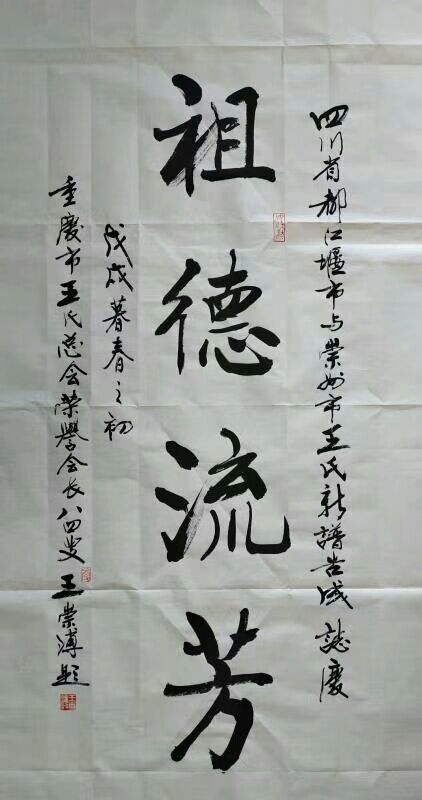 四川省都江堰市与崇州市王氏新譜告成誌慶
祖德流芳
戊戌暮春之初
重慶市王氏总会荣譽会长八四叟王崇溥题